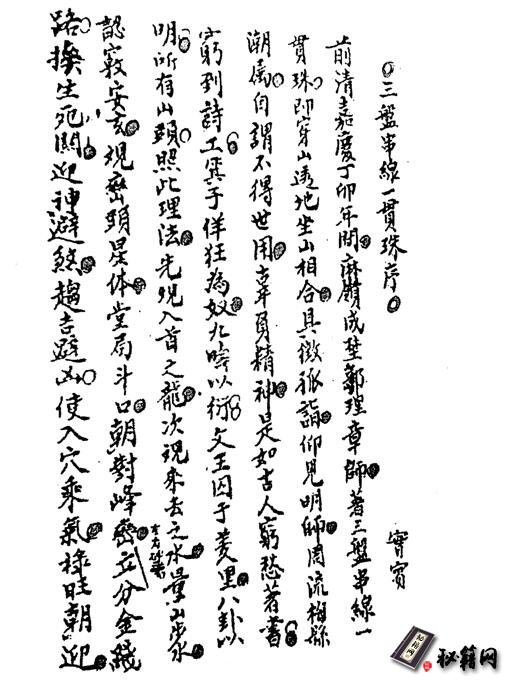 三盤串線一貫珠序
寶賓
前清嘉慶丁卯年間麻鬚成瑩郭理章師著三盤串線一
貫珠即穿山透地坐山相合具徵孤詣仰見明師周流梅縣
潮屬自謂不得世用辜負精神是如古人窮愁著書
窮到詩工箕子佯狂為奴九疇以衍文王囚于羑里八卦以
明所有山頭照此理法先覌入首之龍次覌來去之水量山步水
認竅安玄覌巒頭星体堂局斗口朝對峰巒立分金綫
左右砂
路換生死關迎神避煞趨吉避凶使入穴乘氣祿旺朝迎
秘籍网